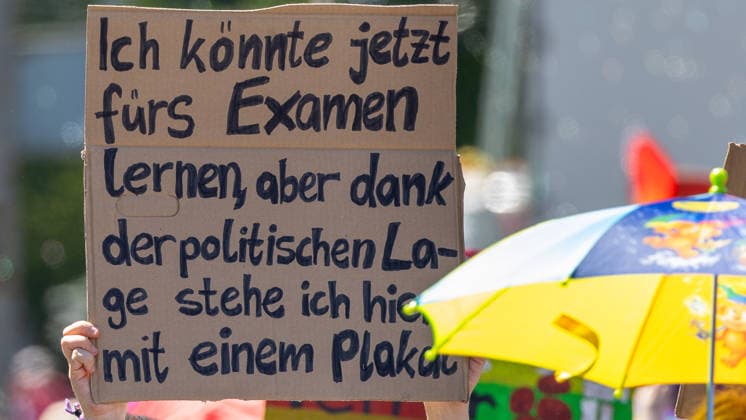 Ich könnte jetzt
fürs Examen
lernen, aber dank
der politischen La-
ge stehe ich hier
mit einem Plakat